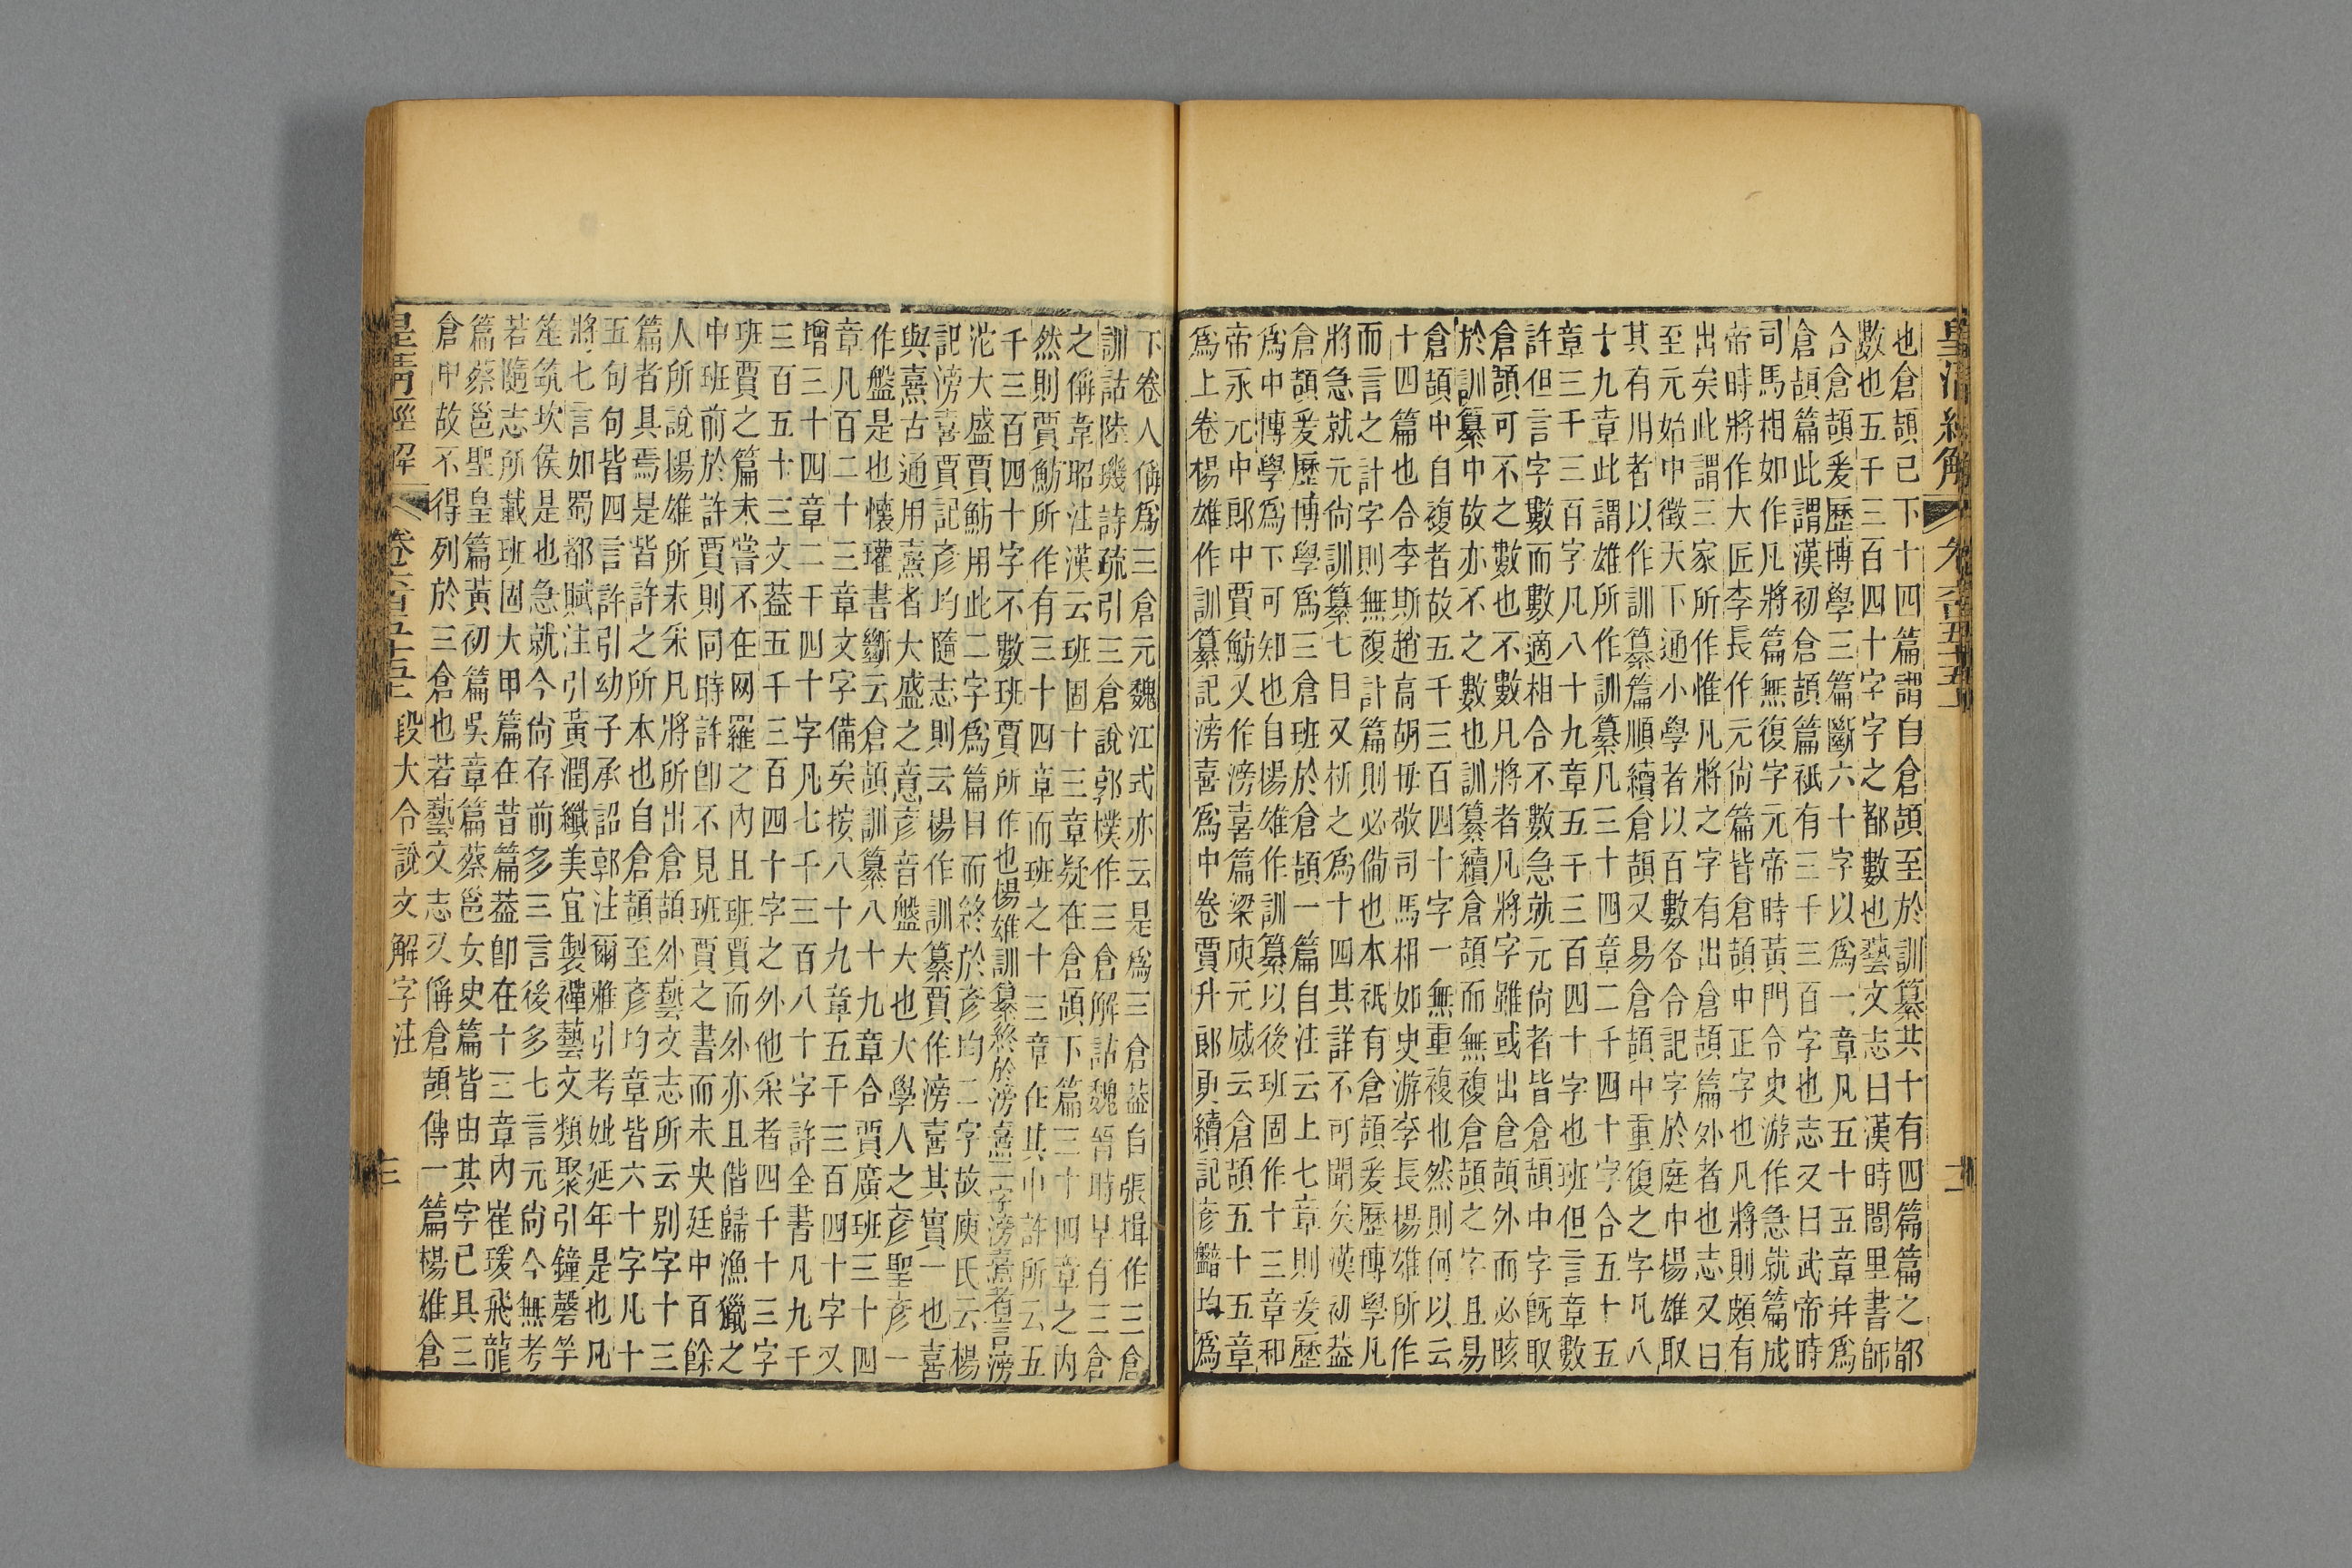 皇清經解 卷六百五十五 二
也倉頡已下十四篇謂自倉頡至於訓纂共十有四篇篇之都
數也五千三百四十字字之都數也藝文志曰漢時閭里書師
合倉頡爰歷博學三篇斷六十字以爲一章凡五十五章幷爲
倉頡篇此謂漢初倉頡篇祇有三千三百字也志又曰武帝時
司馬相如作凡將篇無復字元帝時黃門令史游作急就篇成
帝時將作大匠李長作元尙篇皆倉頡中正字也凡將則頗有
出矣此謂三家所作惟凡將之字有出倉頡篇外者也志又曰
至元始中徵天下通小學者以百數各令記字於庭中楊雄取
其有用者以作訓纂篇順續倉頡又易倉頡中重復之字凡八
十九章此謂雄所作訓纂凡三十四章二千四十字合五十五
章三千三百字凡八十九章五千三百四十字也班但言章數
許但言字數而數適相合不數急就元尙者皆倉頡中字旣取
倉頡可不之數也不數凡將者凡將字雖或出倉頡外而必晐
於訓纂中故亦不之數也訓纂續倉頡而無複倉頡之字且易
倉頡中自複者故五千三百四十字一無重複也然則何以云
十四篇也合李斯趙高胡毋敬司馬相如史游李長楊雄所作
而言之計字則無複計篇則必備也本祇有倉頡爰歷博學凡
將急就元尙訓纂七目又析之爲十四其詳不可聞矣漢初葢
倉頡爰歷博學爲三倉班於倉頡一篇自注云上七章則爰歷
爲中博學爲下可知也自楊雄作訓纂以後班固作十三章和
帝永元中郞中賈魴又作滂喜篇梁庾元威云倉頡五十五章
爲上卷楊雄作訓纂記滂喜爲中卷賈升郞更續記彥盤均爲
下卷人偁爲三倉元魏江式亦云是爲三倉葢自張揖作三倉
訓詁陸璣詩疏引三倉說郭樸作三倉解詁魏晉時早有三倉
之偁韋昭注漢云班固十三章疑在倉頡下篇三十四章之內
然則賈魴所作有三十四章而班之十三章在其中許所云五
千三百四十字不數班賈所作也楊雄訓纂終於滂熹二字滂熹者言滂
沱大盛賈魴用此二字爲篇目而終於彥均二字故庾氏云楊
記滂喜賈記彥均隨志則云楊作訓纂賈作滂喜其實一也喜
與熹古通用熹者大盛之意彥音盤大也大學人之彥聖彥一
作盤是也懷瓘書斷云倉頡訓纂八十九章合賈廣班三十四
章凡百二十三章文字備矣按八十九章五千三百四十字又
增三十四章二千四十字凡七千三百八十字許全書凡九千
三百五十三文葢五千三百四十字之外他采者四千十三字
班賈之篇未嘗不在网羅之內且班賈而外亦且偕歸漁獵之
中班前於許賈則同時許卽不見班賈之書而未央廷中百餘
人所說楊雄所未采凡將所出倉頡外藝文志所云別字十三
篇者具焉是皆許之所本也自倉頡至彥均章皆六十字凡十
五句句皆四言許引幼子承詔郭注爾雅引考妣延年是也凡
將七言如蜀都賦注引黃潤纖美宜製襌藝文類聚引鐘磬竽
笙筑坎侯是也急就今尙存前多三言後多七言元尙今無考
若隨志所載班固大甲篇在昔篇葢卽在十三章內崔瑗飛龍
篇蔡邕聖皇篇黃初篇吳章篇蔡邕女史篇皆由其字已具三
倉中故不得列於三倉也若藝文志又偁倉頡傳一篇楊雄倉
皇淸經解 卷六百五十五 段大令說文解字注 三